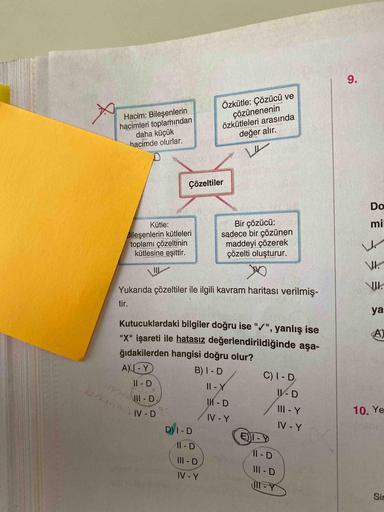 9.
Hacim: Bileşenlerin
hacimleri toplamından
daha küçük
hacimde olurlar.
Özkütle: Çözücü ve
çözünenenin
özkütleleri arasında
değer alır.
II
Çözeltiler
Kütle:
Bileşenlerin kütleleri
toplamı çözeltinin
kütlesine eşittir.
III
Bir çözücü:
sadece bir çözünen
maddeyi çözerek
çözelti oluşturur.
Yukarıda çözeltiler ile ilgili kavram haritası verilmiş-
tir.
Kutucuklardaki bilgiler doğru ise "✓", yanlış ise
"X" işareti ile hatasız değerlendirildiğinde aşa-
ğıdakilerden hangisi doğru olur?
A) I - Y
II - D
III - D
IV - D
B) I - D
II - Y
III - D
IV - Y
C) I - D
II - D
III - Y
IV - Y
D) I - D
II - D
III - D
IV - Y
E) I - Y
II - D
III - D
III - Y
Do
mi
I.
II.
III.
ya
A)
10. Ye
Sir